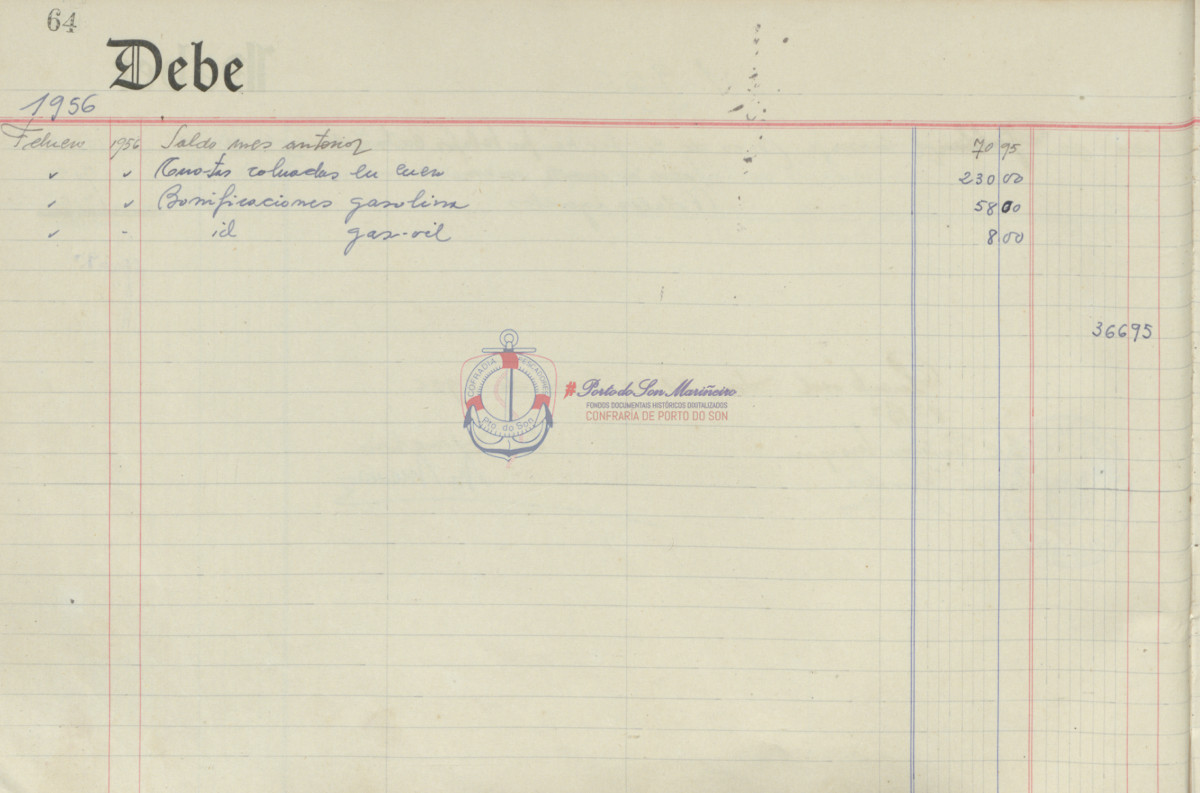 64
Debe
1956
Febrero 1956 Saldo mes anterior 70 95
✓ ✓ Cuotas cobradas en enero 230 00
✓ ✓ Bonificaciones gasolina 58 00
✓ - id gas-oil 8 00
366 95
COFRADIA PESCADORES
Pto. do Son
# Porto do Son Mariñeiro
FONDOS DOCUMENTAIS HISTÓRICOS DIXITALIZADOS
CONFRARIA DE PORTO DO SON